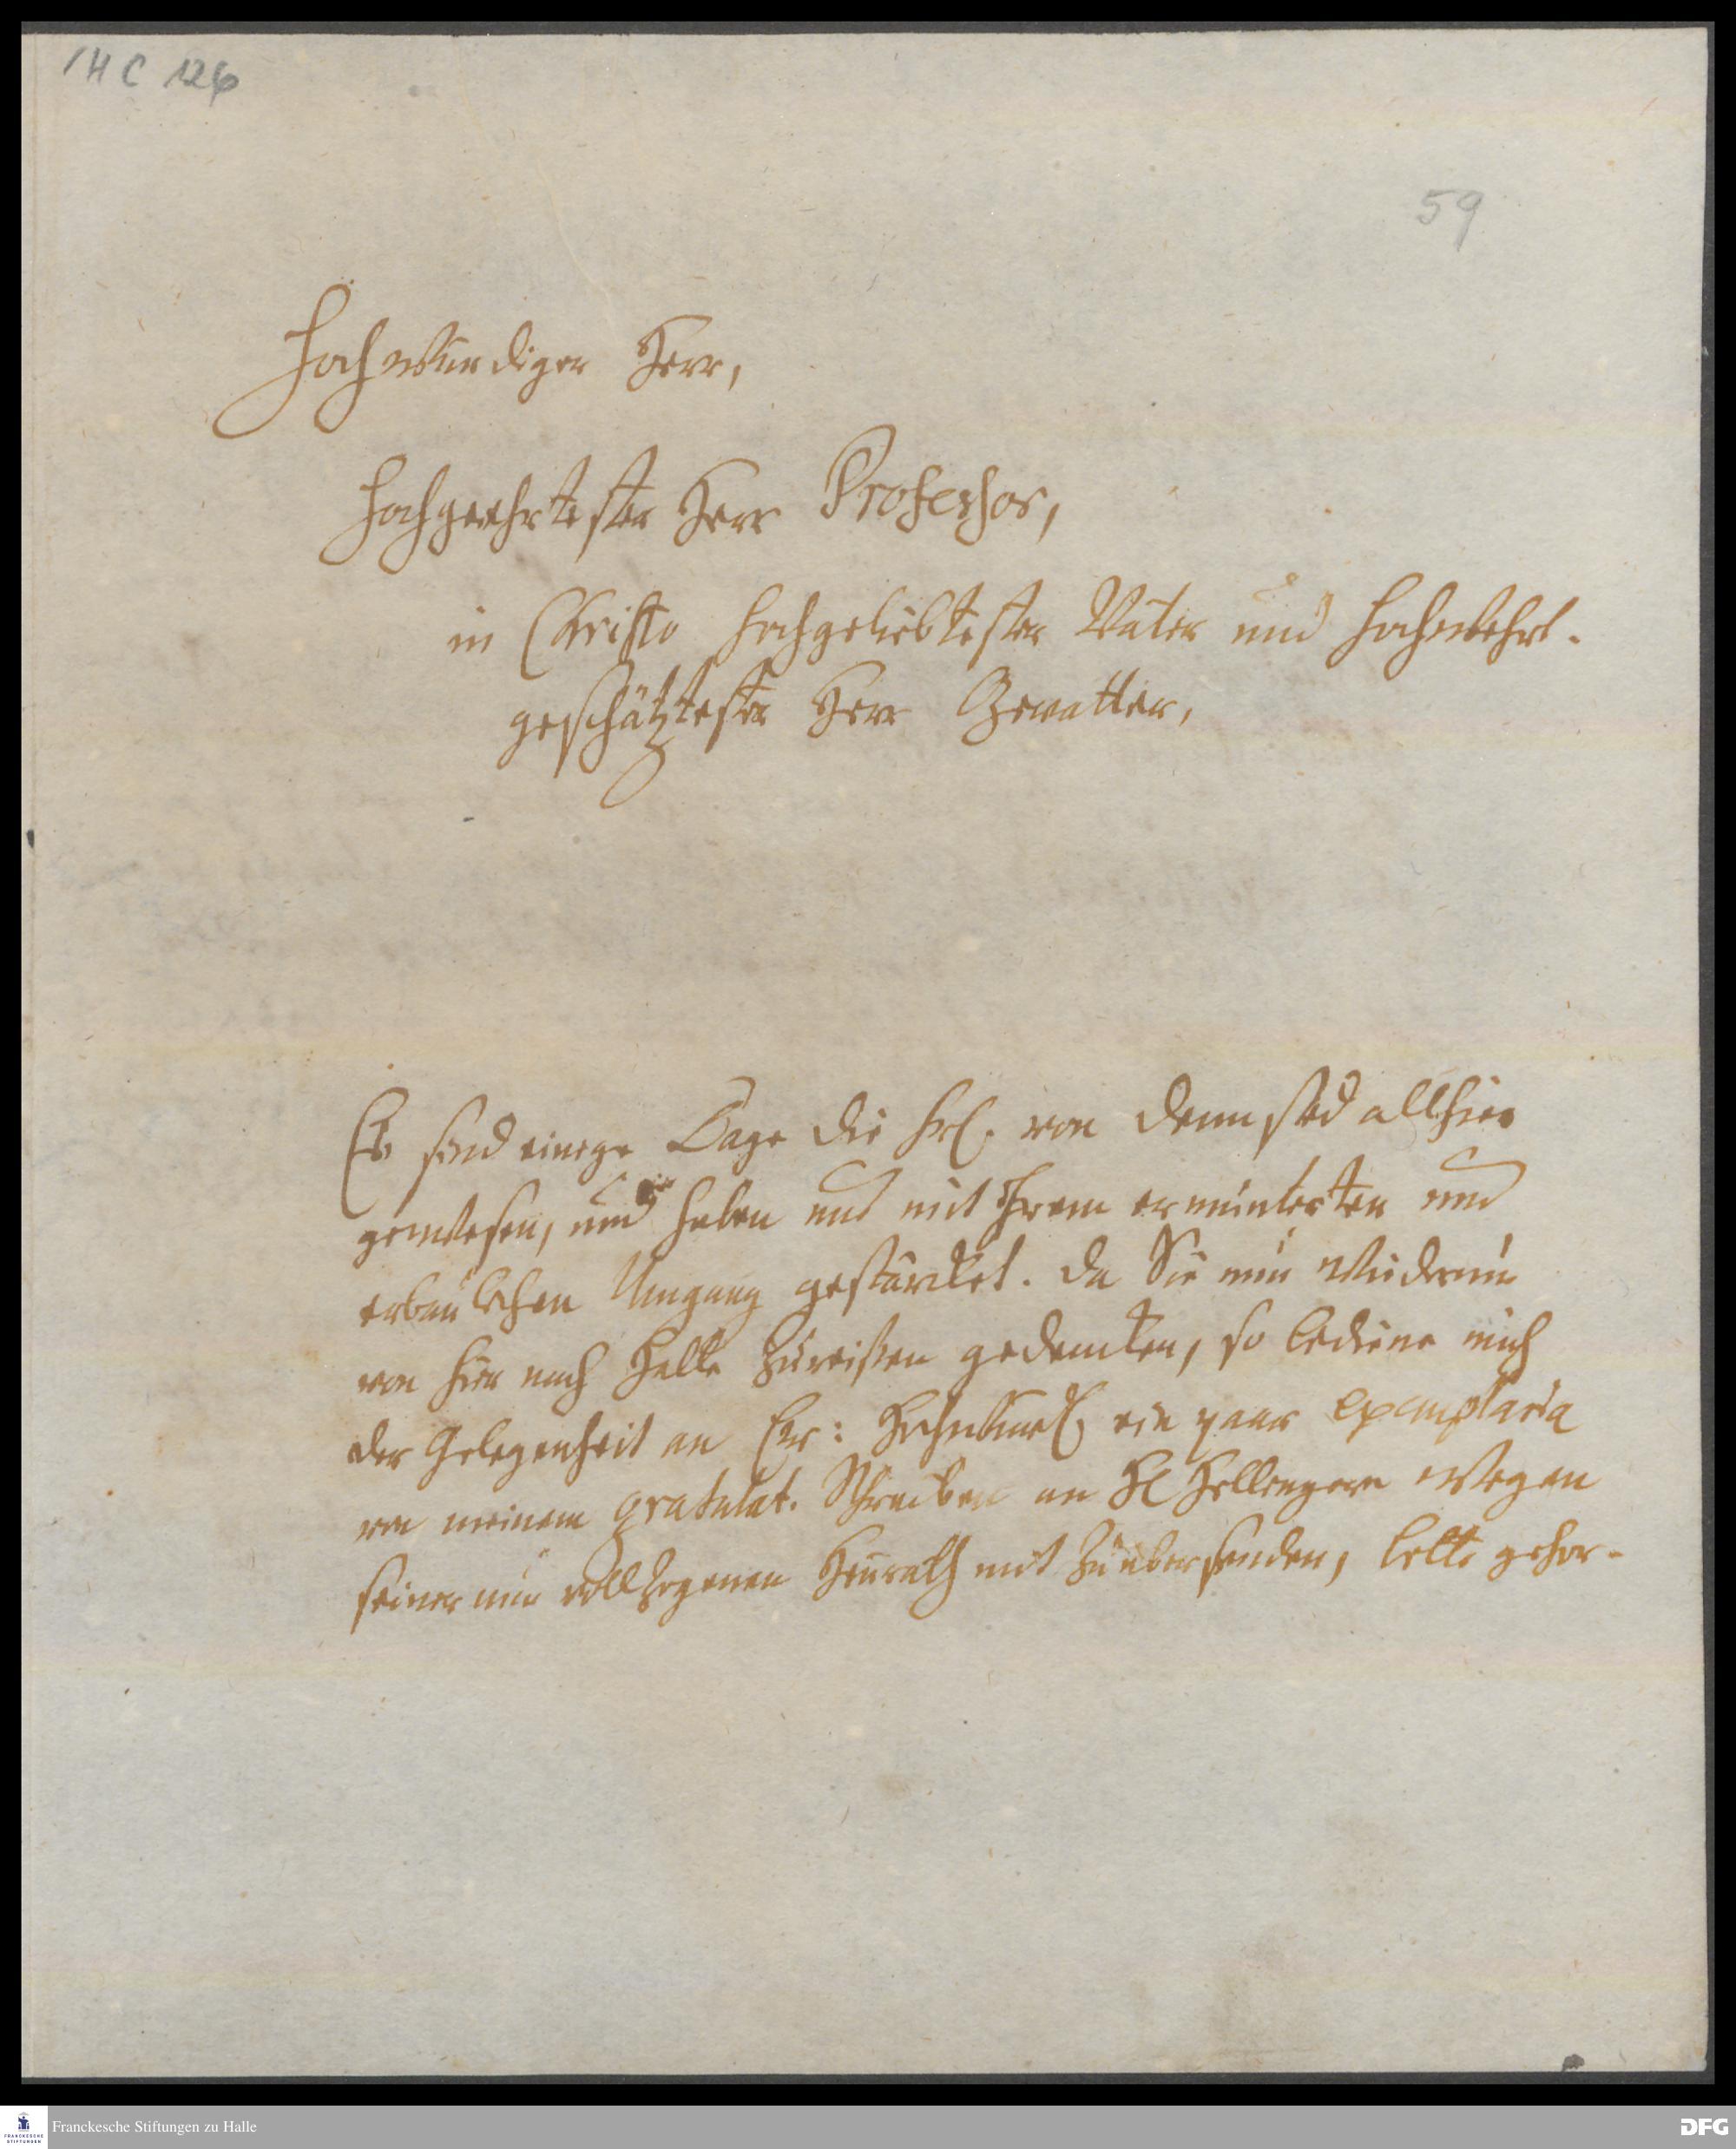 1 H C 126
59
Hochwürdiger Herr,
Hochgeehrtester Herr Professor,
in Christo hochgeliebtester Vater und hochwehrt-
geschätztester Herr Gevatter,
Es sind einige Tage die Frl. von Dennsted allhier
gewesen, und haben uns mit Ihrem ermunterten und
erbaulichen Umgang gestärcket. Da Sie nun wiederum
von hier nach Halle zureisen gedencken, so bediene mich
der Gelegenheit an Ew: Hochwürd. ein paar exemplaria
von meinem gratulat. Schreiben an H. wegen
seiner nun vollzogenen Heurath mit zuübersenden, bitte gehor-
Franckesche Stiftungen zu Halle
FRANCKESCHE
STIFTUNGEN
DFG